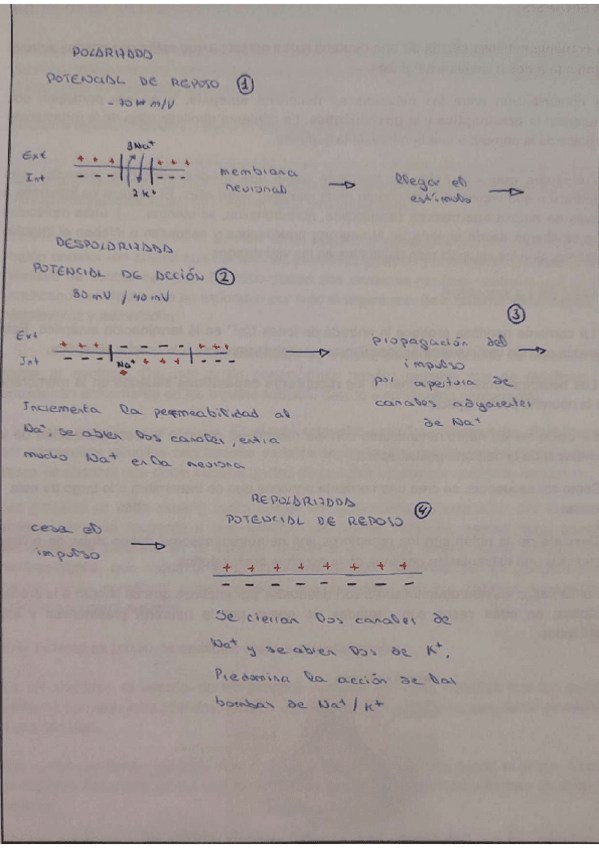 POLARIZADA
POTENCIAL DE REPOSO ①
3Na⁺
Ext + + + + + +
Int - - - - - -
2K⁺
membrana
neuronal
→
llegar el
estímulo
→
DESPOLARIZADA
POTENCIAL DE ACCIÓN ②
30 mV / 40 mV
Ext + + + - - - - + + +
Int - - - Na⁺ + + + + - - -
+
→
③
propagación del
impulso
por apertura de
canales adyacentes
de Na⁺
→
Incrementa la permeabilidad al
Na⁺, se abren los canales, entra
mucho Na⁺ en la neurona
cesa el
impulso
→
REPOLARIZADA
POTENCIAL DE REPOSO ④
+ + + + + + + +
- - - - - - - -
Se cierran los canales de
Na⁺ y se abren los de K⁺.
Predomina la acción de las
bombas de Na⁺/K⁺